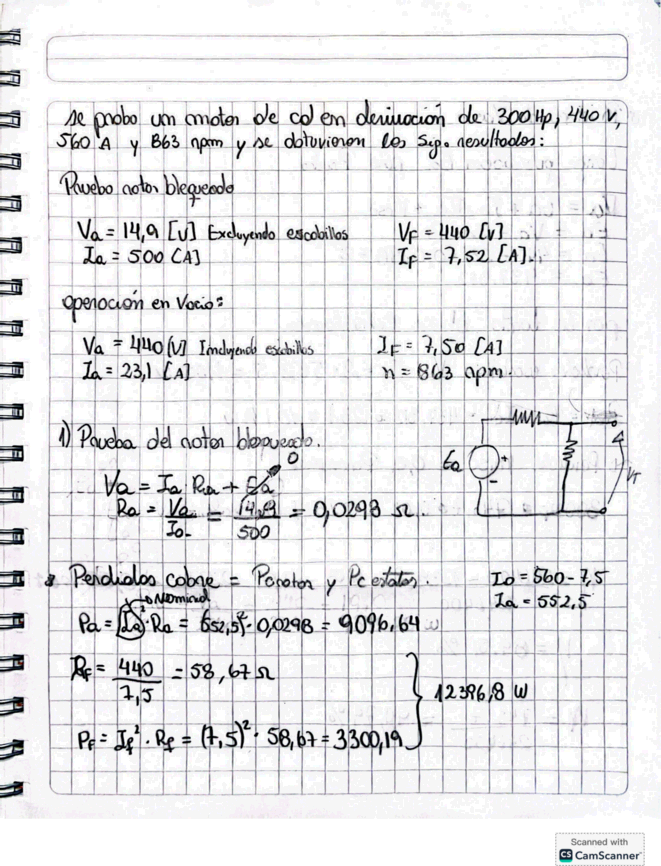 se probo um motor de cd em derivación de 300 Hp, 440 V,
560 A y 863 rpm y se obtuvieron los sig. resultados:
Prueba rotor bloqueado
Va = 14,9 [V] Excluyendo escobillas
VF = 440 [V]
Ia = 500 [A]
IF = 7,52 [A].
operación en Vacio:
Va = 440 [V] Imcluyendo escobillas
IF = 7,50 [A]
Ia = 23,1 [A]
n = 863 rpm.
1) Prueba del rotor bloqueado.
0
Va = Ia Ra + Ea
Ra = Va/Ia = 14,9/500 = 0,0298 Ω.
Ea
+
-
VT
Perdidas cobre = Pcrotor y Pc estator.
Ia = 560 - 7,5
Ia = 552,5
Nominal
Pa = Ia² · Ra = 552,5² · 0,0298 = 9096,64 w
RF = 440/7,5 = 58,67 Ω
12396,8 W
PF = If² · Rf = (7,5)² · 58,67 = 3300,19
Scanned with
CS CamScanner